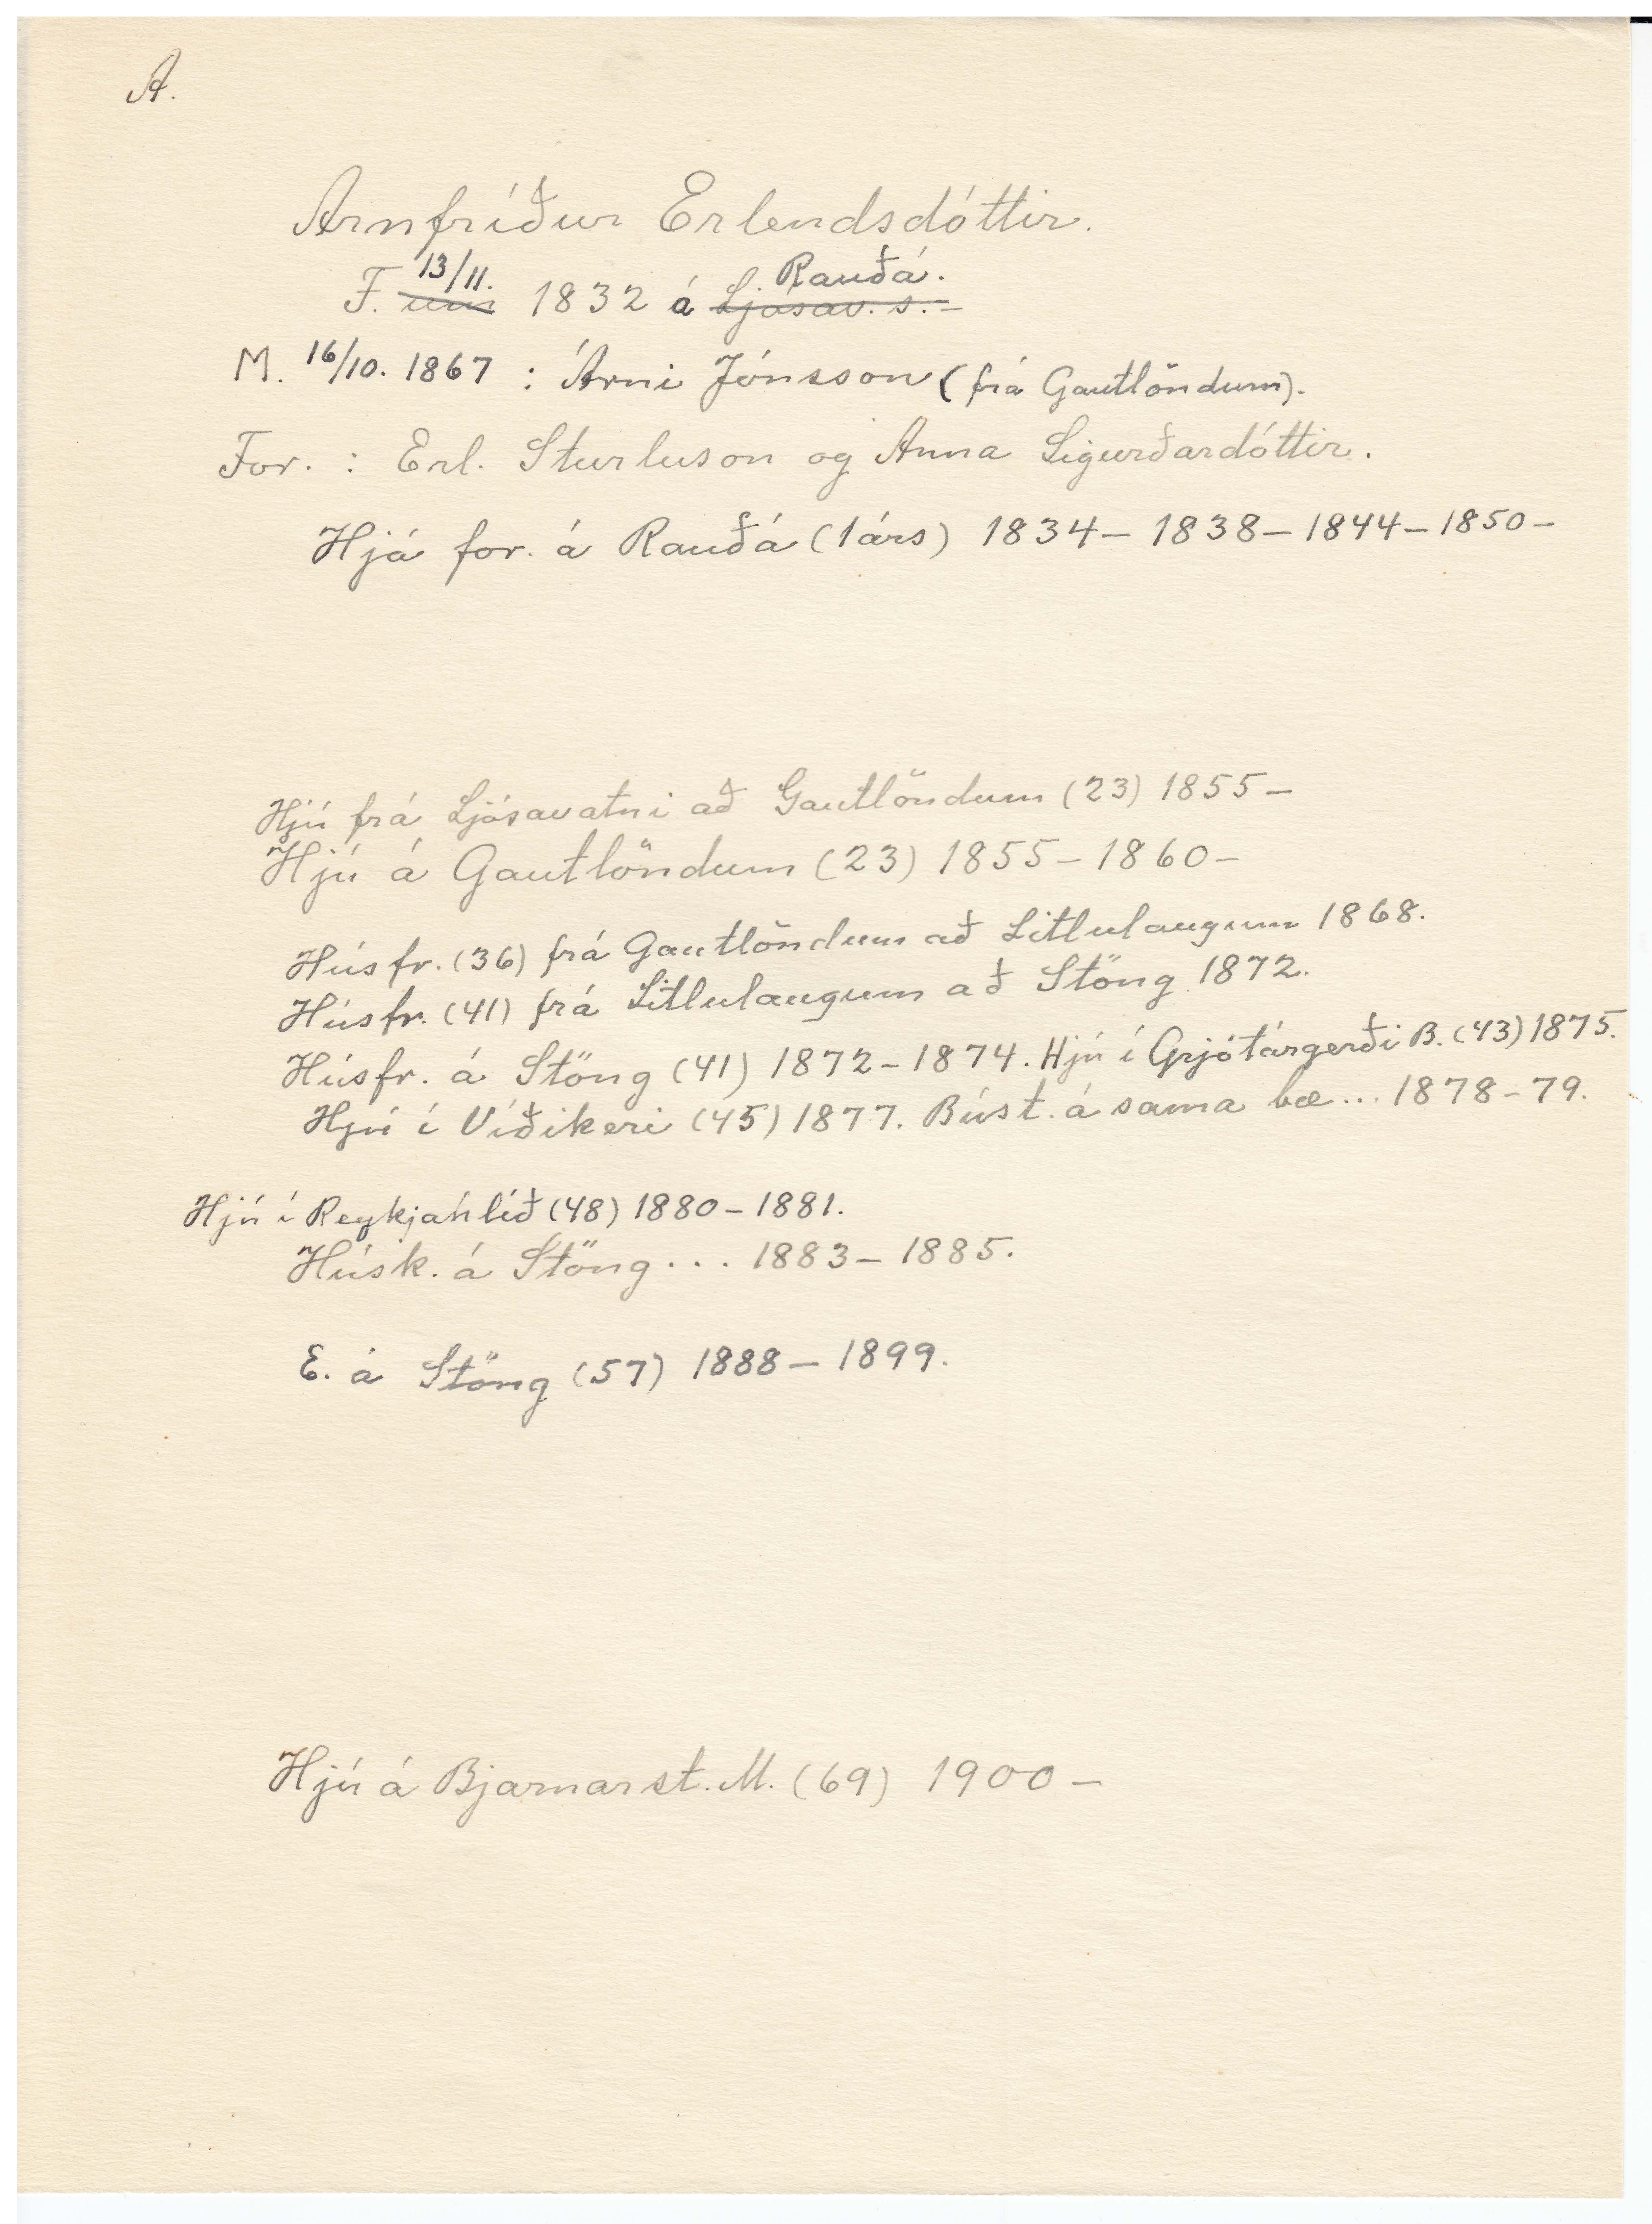 A.
Arnfríður Erlendsdóttir.
13/11. Rauðá.
F. um 1832 á Ljósav. s. -
M. 16/10. 1867 : Árni Jónsson (frá Gautlöndum).
For. : Erl. Sturluson og Anna Sigurðardóttir.
Hjá for. á Rauðá (1árs) 1834 - 1838 - 1844 - 1850 -
Hjú frá Ljósavatni að Gautlöndum (23) 1855 -
Hjú á Gautlöndum (23) 1855 - 1860 -
Húsfr. (36) frá Gautlöndum að Litlulaugum 1868.
Húsfr. (41) frá Litlulaugum að Stöng 1872.
Húsfr. á Stöng (41) 1872 - 1874. Hjú í Grjótárgerði B. (43) 1875.
Hjú í Víðikeri (45) 1877. Búst. á sama bæ... 1878 - 79.
Hjú í Reykjahlíð (48) 1880 - 1881.
Húsk. á Stöng... 1883 - 1885.
E. á Stöng (57) 1888 - 1899.
Hjú á Bjarnarst. M. (69) 1900 -